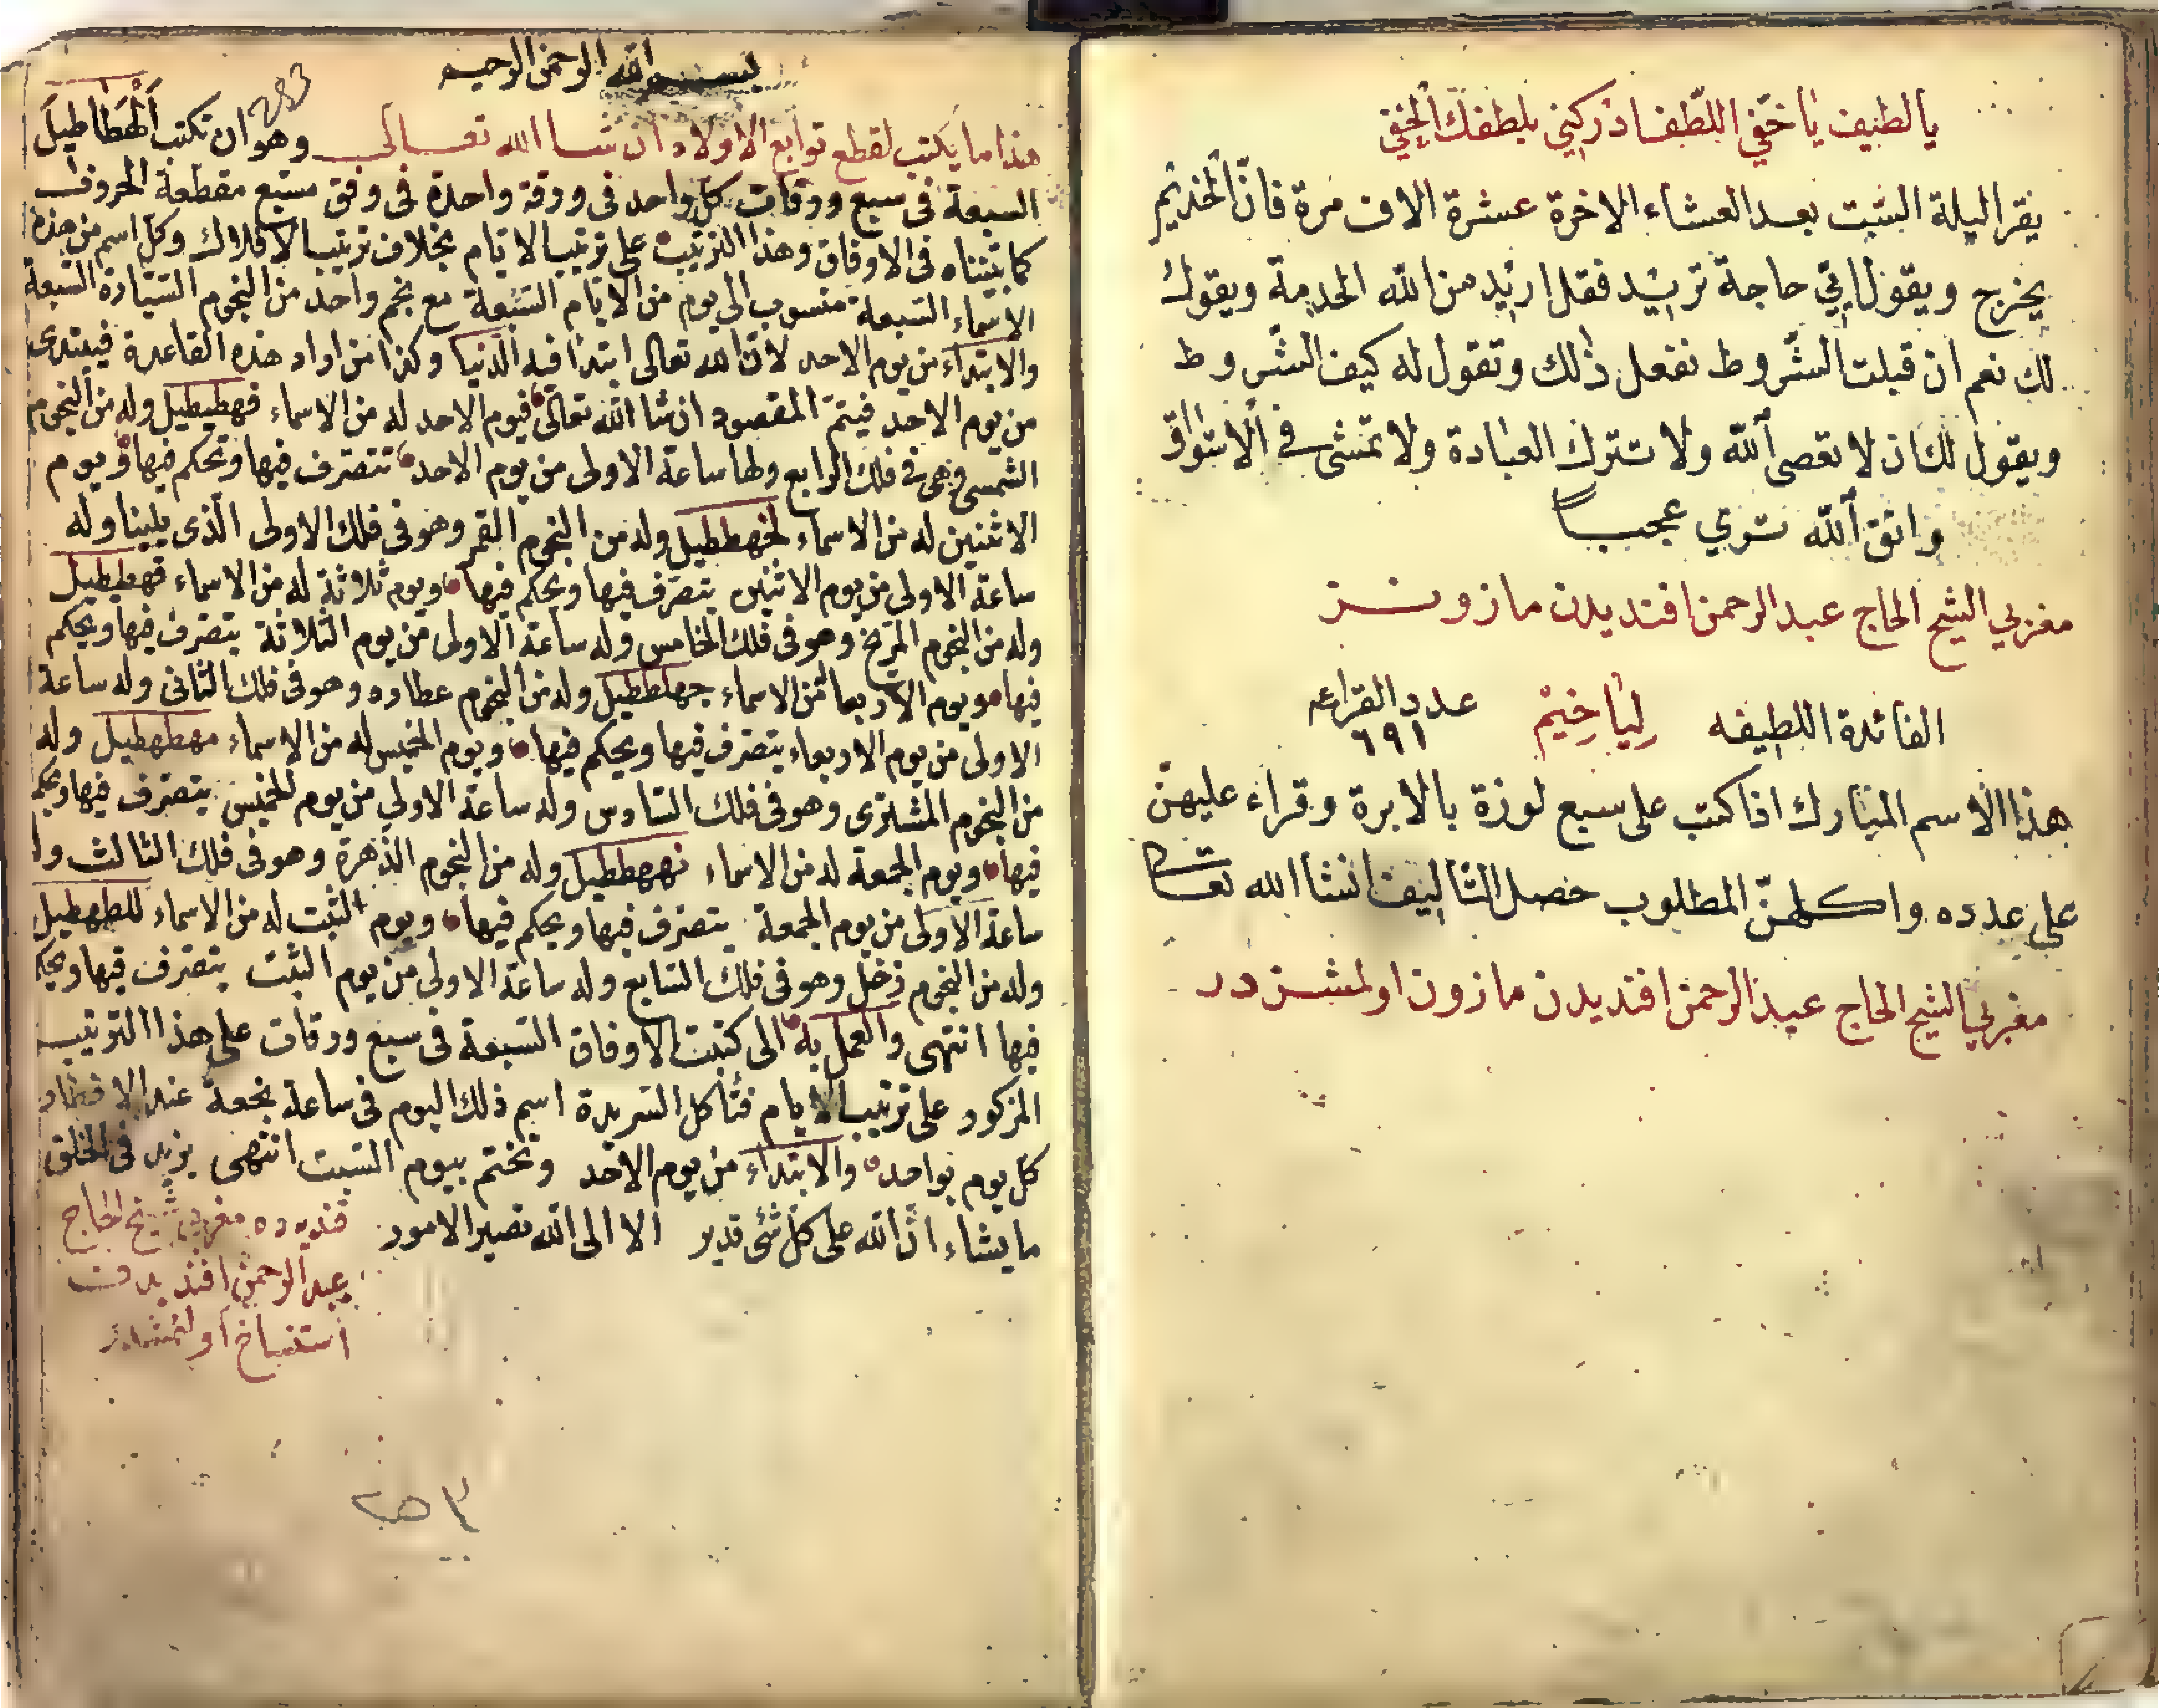 يالطيف ياخفي اللطف ادركني بلطفك الخفي
يقرا ليلة السبت بعد العشاء الاخرة عشرة الاف مرة فان الخديم
يخرج ويقول اي حاجة تريد فقل اريد من الله الخدمة ويقول
لك نعم ان قبلت الشروط نفعل ذلك وتقول له كيف الشروط
ويقول لك ان لا تعصى الله ولا تترك العبادة ولا تمشى في الاسواق
واتق الله ترى عجبا
مغربي الشيخ الحاج عبد الرحمن افنديدن مازونـز
الفائدة اللطيفه لياخيم عدد القراءه ٦٩١
هذا الاسم المبارك اذا كتب على سبع لوزة بالابرة وقراء عليهن
على عدده واكلهن المطلوب حصل التاليف انشا الله تعا
مغربي الشيخ الحاج عبد الرحمن افنديدن مازون اولمشـزدر
بسم الله الرحمن الرحيم
هذا ما يكتب لقطع توابع الاولاد ان شا الله تعالى وهو ان تكتب الهطاطيل
السبعة فى سبع ورقات كل واحد فى ورقة واحدة فى وفق مسبع مقطعة الحروف
كما بيناه فى الاوفاق وهذا الترتيب على ترتيب الايام بخلاف ترتيب الافلاك وكل اسم من هذه
الاسماء السبعة منسوب الى يوم من الايام السبعة مع نجم واحد من النجوم السيارة السبعة
والابتداء من يوم الاحد لان الله تعالى ابتدا فيه الدنيا وكذا من اراد هذه القاعدة فيبتدئ
من يوم الاحد فيتم المقصود ان شا الله تعالى فيوم الاحد له من الاسماء فهطيطيل وله من النجوم
الشمس وهى فى فلك الرابع ولها ساعة الاولى من يوم الاحد تتصرف فيها وتحكم فيها ويوم
الاثنين له من الاسماء لخهططيل وله من النجوم القمر وهو فى فلك الاولى الذى يلينا وله
ساعة الاولى من يوم الاثنين يتصرف فيها ويحكم فيها ويوم ثلاثة له من الاسماء قهطيطيل
وله من النجوم المريخ وهو فى فلك الخامس وله ساعة الاولى من يوم الثلاثة يتصرف فيها ويحكم
فيها ويوم الاربعا من الاسماء جهلططيل وله من النجوم عطارد وهو فى فلك الثانى وله ساعة
الاولى من يوم الاربعاء يتصرف فيها ويحكم فيها ويوم الخميس له من الاسماء مهطهطيل وله
من النجوم المشترى وهو فى فلك السادس وله ساعة الاولى من يوم الخميس يتصرف فيها ويحكم
فيها ويوم الجمعة له من الاسماء نهههططيل وله من النجوم الزهرة وهو فى فلك الثالث ولها
ساعة الاولى من يوم الجمعة يتصرف فيها ويحكم فيها ويوم السبت له من الاسماء للطهطيل
وله من النجوم زحل وهو فى فلك السابع وله ساعة الاولى من يوم السبت يتصرف فيها ويحكم
فيها انتهى والعمل به الى كتبت الاوفاق السبعة فى سبع ورقات على هذا الترتيب
المزكور على ترتيب الايام فتاكل اسم ذلك اليوم فى ساعة نجمة عند الافطار
كل يوم بواحد والابتداء من يوم الاحد وتختم بيوم السبت انتهى يزيد فى الخلق
ما يشاء ان الله على كل شئ قدير الا الى الله تصير الامور
مغربي شيخ الحاج
عبد الرحمن افنديدن
استنساخ اولنمشدر